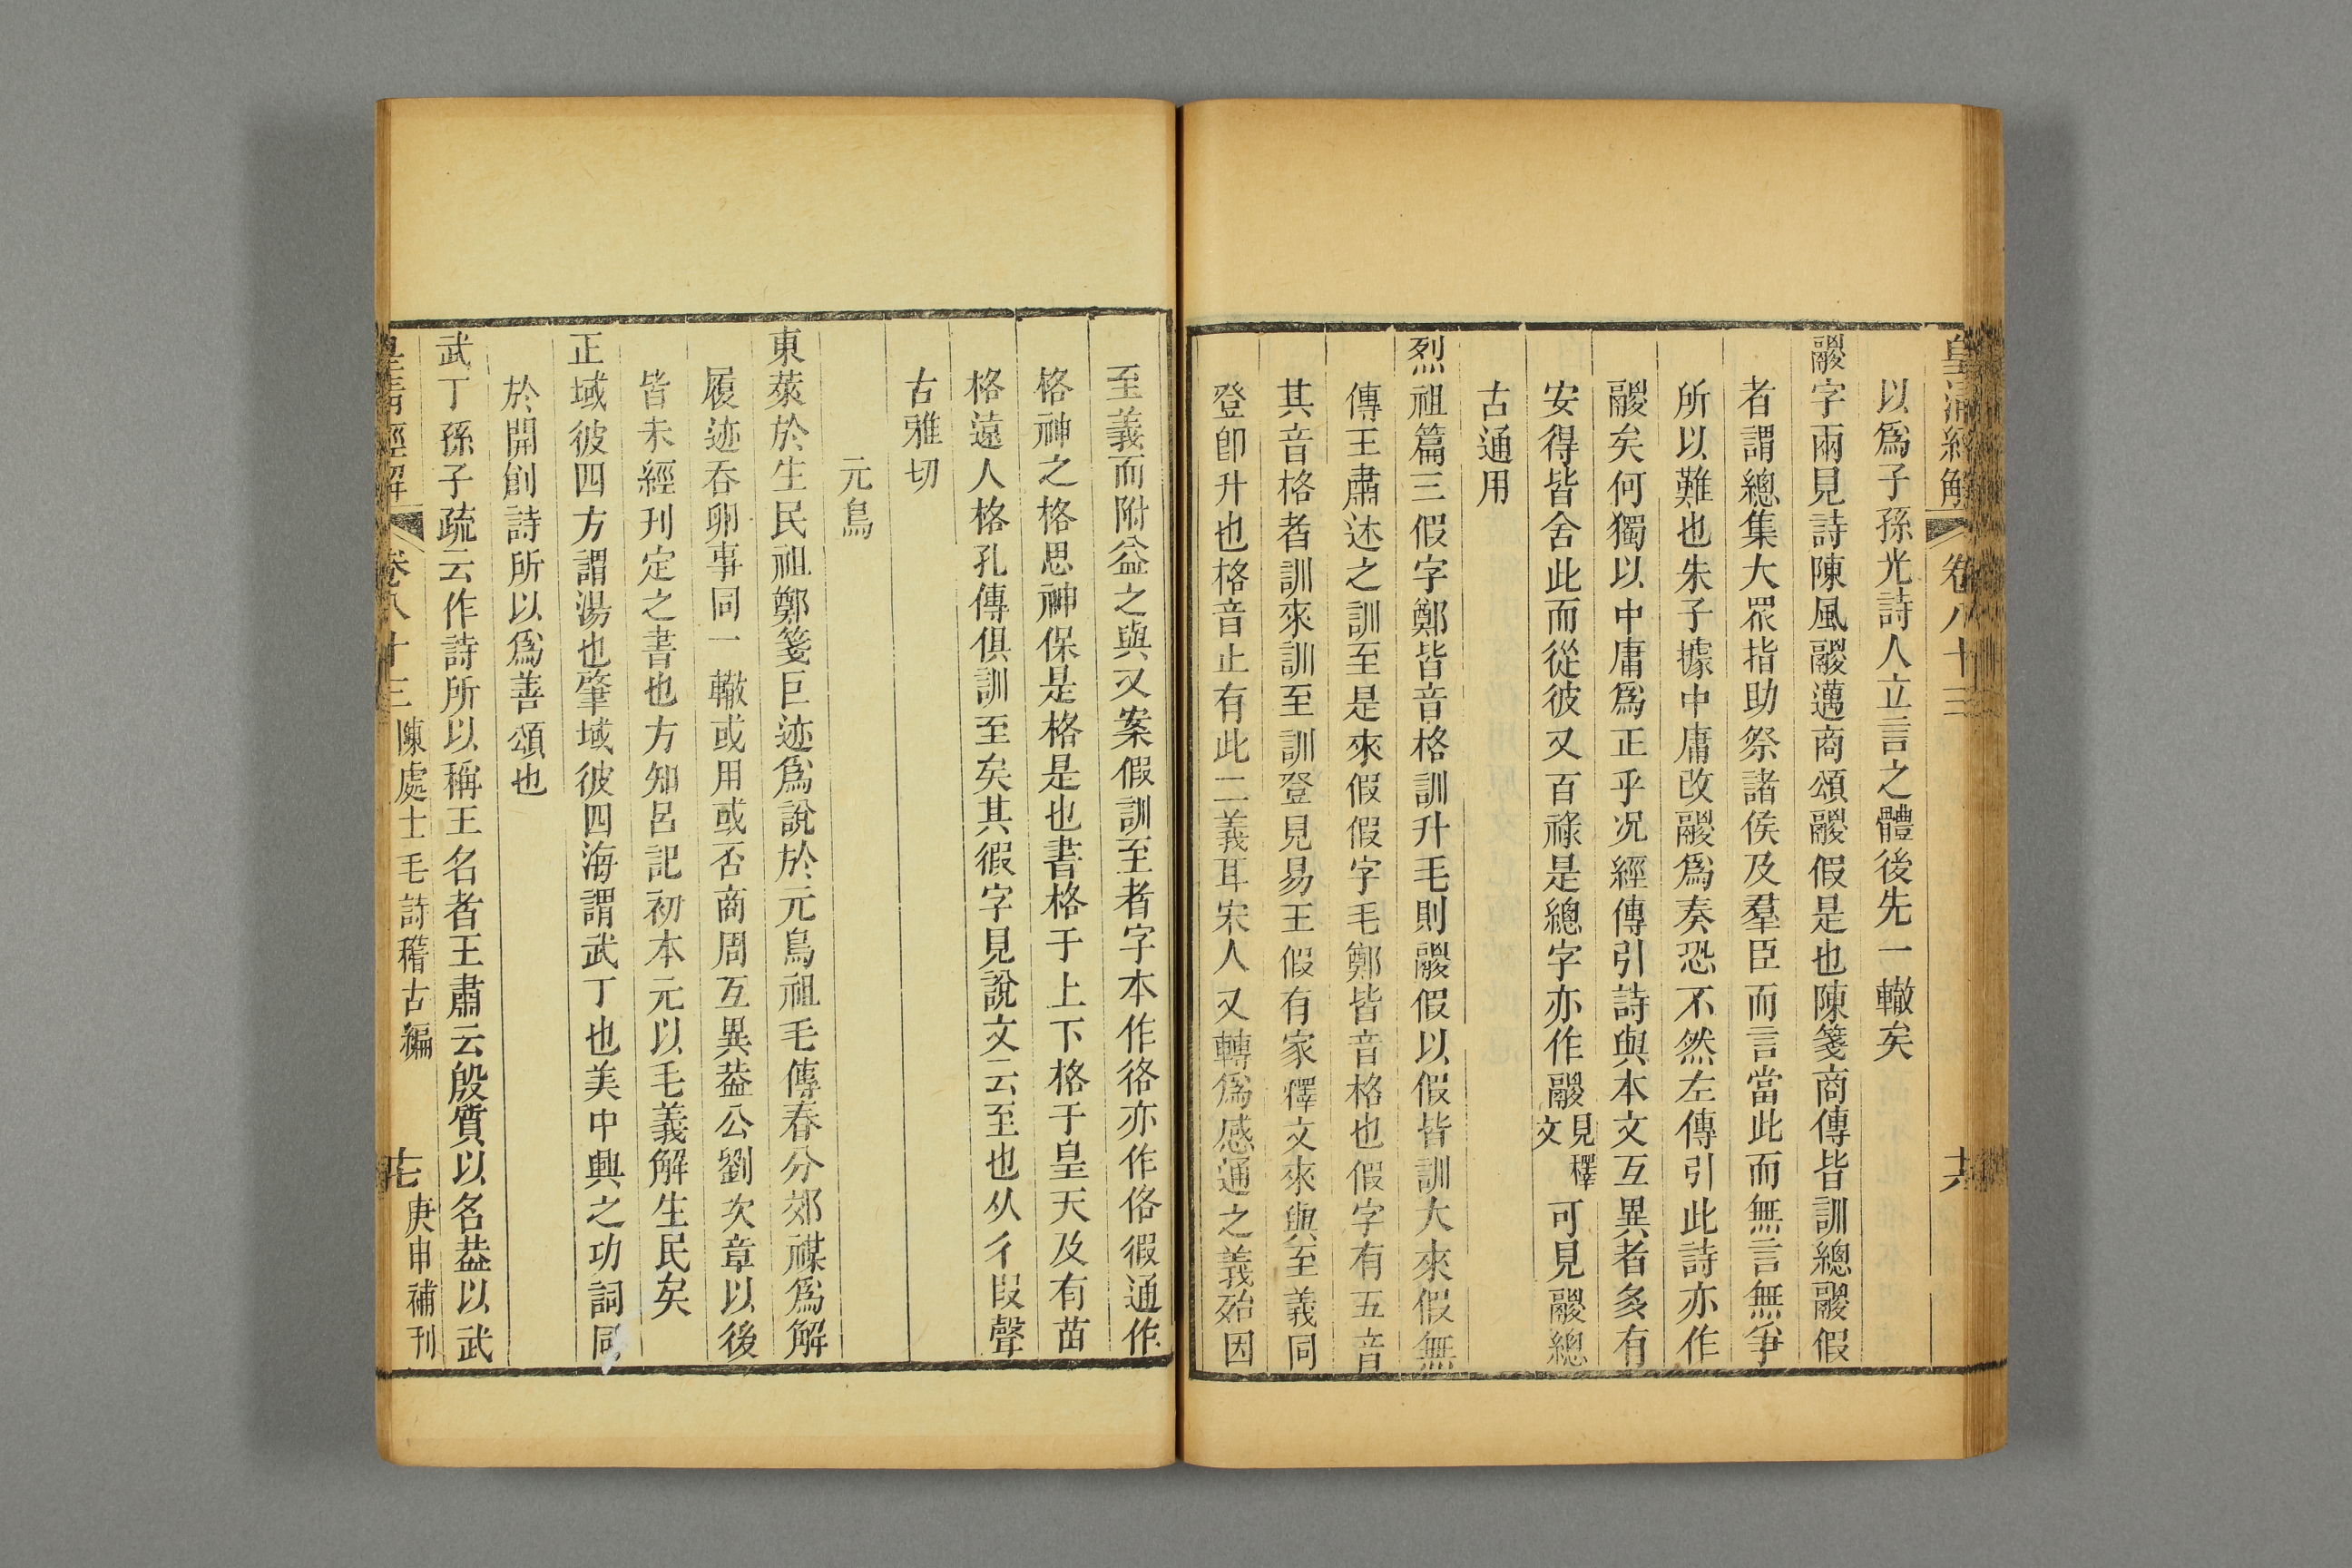 皇清經解 卷八十三 六
以爲子孫光詩人立言之體後先一轍矣
鬷字兩見詩陳風鬷邁商頌鬷假是也陳箋商傳皆訓總鬷假
者謂總集大眾指助祭諸侯及羣臣而言當此而無言無爭
所以難也朱子據中庸改鬷爲奏恐不然左傳引此詩亦作
鬷矣何獨以中庸爲正乎况經傳引詩與本文互異者多有
安得皆舍此而從彼又百祿是總字亦作鬷見釋文可見鬷總
古通用
烈祖篇三假字鄭皆音格訓升毛則鬷假以假皆訓大來假無
傳王肅述之訓至是來假假字毛鄭皆音格也假字有五音
其音格者訓來訓至訓登見易王假有家釋文來與至義同
登卽升也格音止有此二義耳宋人又轉爲感通之義殆因
至義而附益之與又案假訓至者字本作徦亦作佫徦通作
格神之格思神保是格是也書格于上下格于皇天及有苗
格遠人格孔傳俱訓至矣其徦字見說文云至也从彳叚聲
古雅切
元鳥
東萊於生民祖鄭箋巨迹爲說於元鳥祖毛傳春分郊禖爲解
履迹吞卵事同一轍或用或否商周互異葢公劉次章以後
皆未經刊定之書也方知呂記初本元以毛義解生民矣
正域彼四方謂湯也肇域彼四海謂武丁也美中興之功詞同
於開創詩所以爲善頌也
武丁孫子疏云作詩所以稱王名者王肅云殷質以名葢以武
皇清經解 卷八十三 陳處士毛詩稽古編 七 庚申補刊